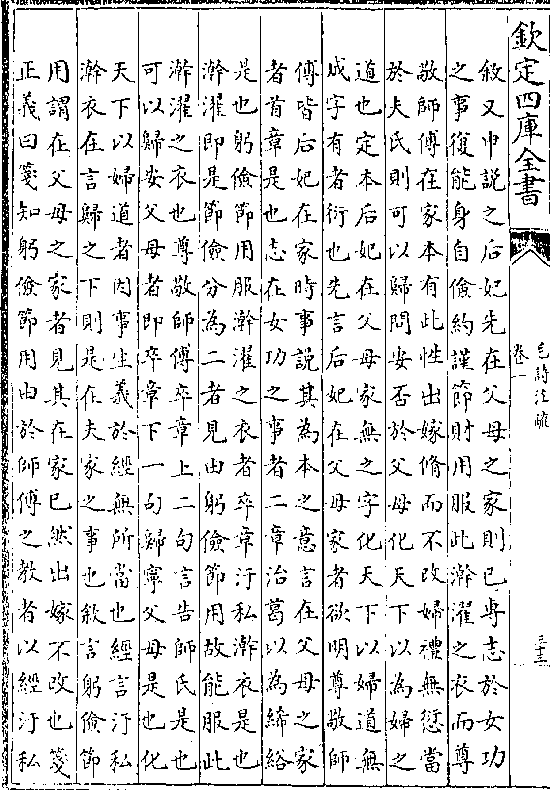 欽定四庫全書
毛詩注疏
卷一
三十三
敘又申説之后妃先在父母之家則已專志於女功
之事復能身自儉約謹節財用服此澣濯之衣而尊
敬師傅在家本有此性出嫁脩而不改婦禮無愆當
於夫氏則可以歸問安否於父母化天下以為婦之
道也定本后妃在父母家無之字化天下以婦道無
成字有者衍也先言后妃在父母家者欲明尊敬師
傅皆后妃在家時事説其為本之意言在父母之家
者首章是也志在女功之事者二章治葛以為絺綌
是也躬儉節用服澣濯之衣者卒章汙私澣衣是也
澣濯即是節儉分為二者見由躬儉節用故能服此
澣濯之衣也尊敬師傅卒章上二句言告師氏是也
可以歸安父母者即卒章下一句歸寧父母是也化
天下以婦道者因事生義於經無所當也經言汙私
澣衣在言歸之下則是在夫家之事也敘言躬儉節
用謂在父母之家者見其在家已然出嫁不改也箋
正義曰箋知躬儉節用由於師傅之教者以經汙私